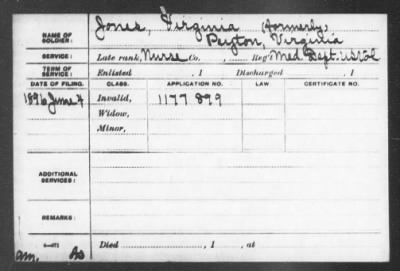 Jones, Virginia (formerly)
NAME OF SOLDIER: Peyton, Virginia
SERVICE: Late rank, Nurse Co. , Reg't Med. Dept. US Vol
TERM OF SERVICE: Enlisted , 1 Discharged , 1
DATE OF FILING. CLASS. APPLICATION NO. LAW CERTIFICATE NO.
1896 June 4 Invalid, 1177 899
Widow,
Minor,
ADDITIONAL SERVICES:
REMARKS:
Died , 1 , at